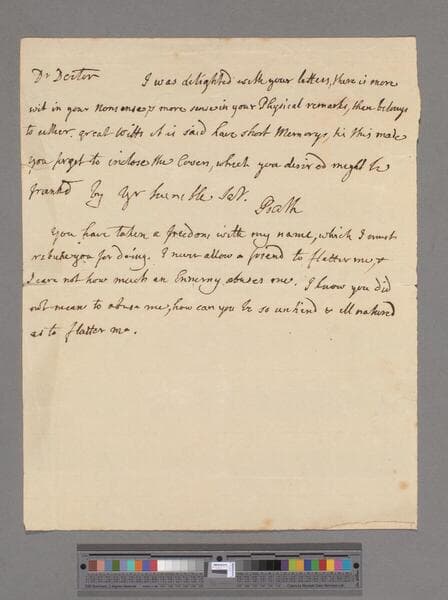 Dr Docter I was delighted with your letters, there is more
wit in your Nonsense & more sense in your Physical remarks, then belongs
to either. great Witts it is said have short Memorys, this made
you forget to inclose the Cover, which you desired might be
frankd by Yr humble Set.
Bath
You have taken a freedom with my name, which I must
rebuke you for doing. I never allow a friend to flatter me, &
I care not how much an Ennemy abuses me. I know you did
not mean to abuse me, how can you be so unkind & ill natured
as to flatter me.